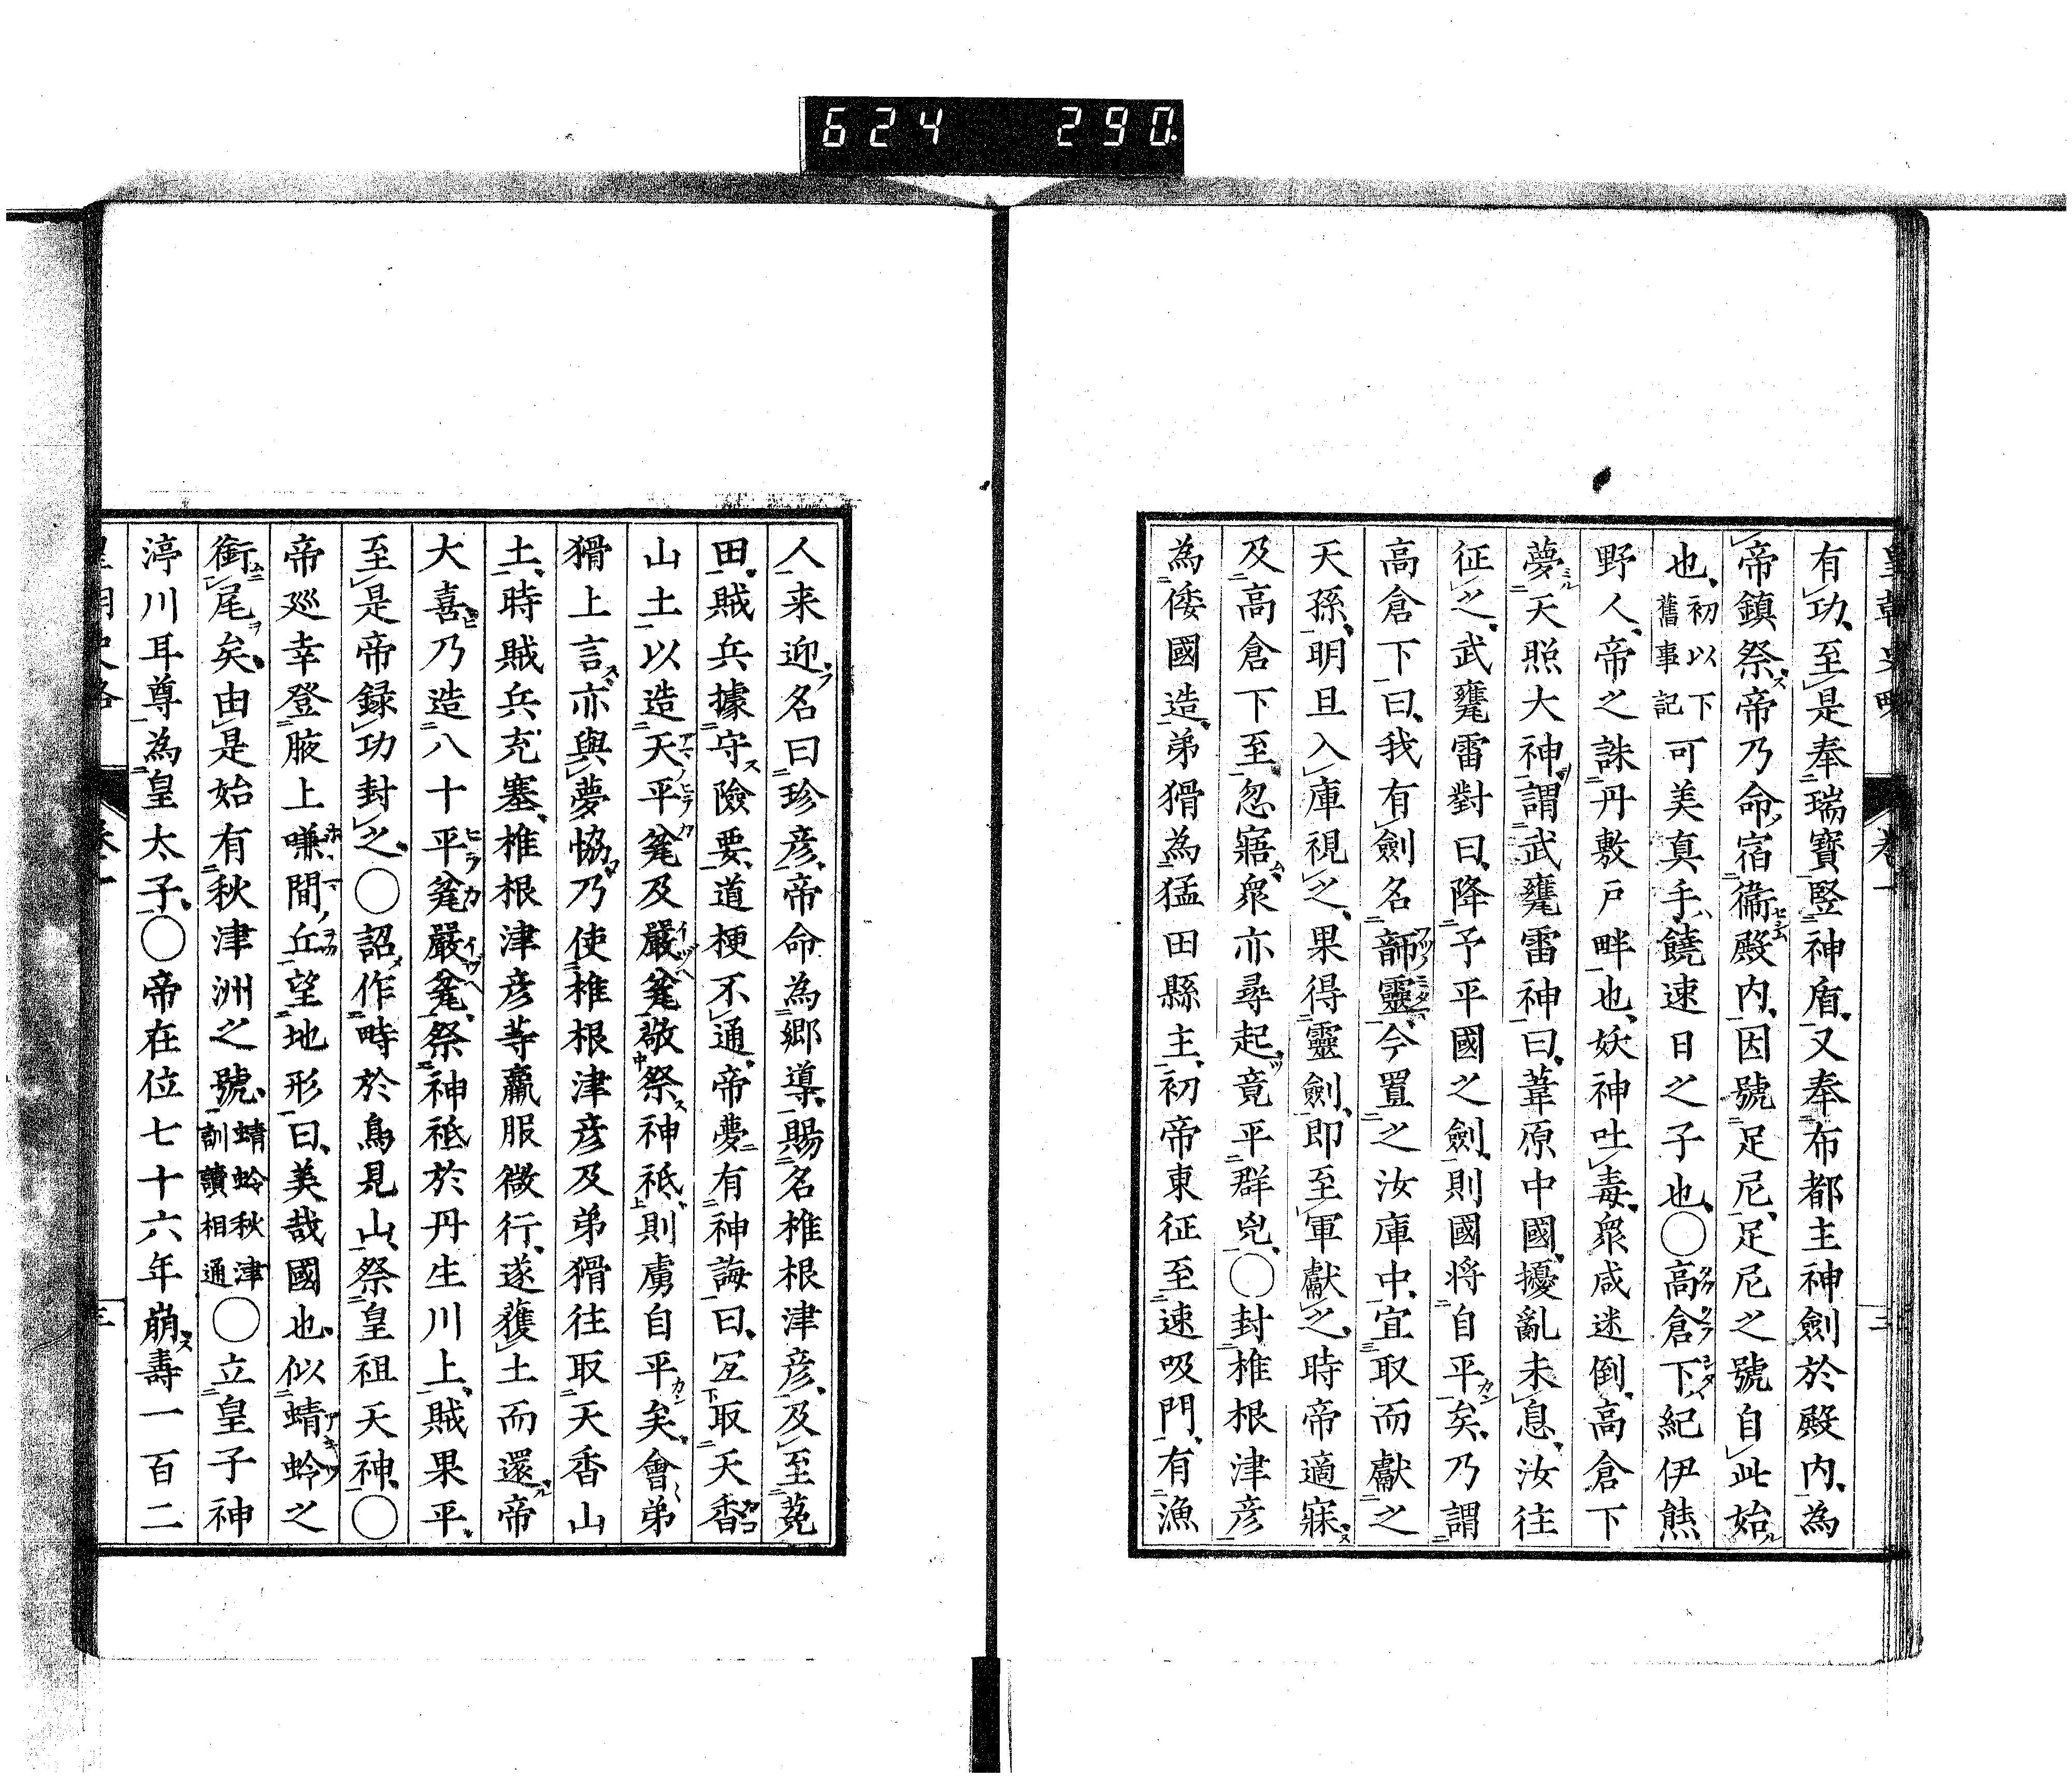 624 290
皇朝史略 卷一 三
有功、至是奉瑞寶、竪神盾、又奉布都主神劍於殿内、為
帝鎮祭、帝乃命宿衞殿内、因號足尼、足尼之號自此始
也、初以下舊事記可美真手、饒速日之子也、○高倉下紀伊熊
野人、帝之誅丹敷戸畔也、妖神吐毒、衆咸迷倒、高倉下
夢天照大神謂武甕雷神曰、葦原中國、擾亂未息、汝往
征之、武甕雷對曰、降予平國之劍、則國将自平矣、乃謂
高倉下曰、我有劍名韴靈、今置之汝庫中、宜取而獻之
天孫、明旦入庫視之、果得靈劍、即至軍獻之、時帝適寐
及高倉下至、忽寤衆亦尋起、竟平群兇、○封椎根津彦
為倭國造、弟猾為猛田縣主、初帝東征至速吸門、有漁
人来迎、名曰珍彦、帝命為郷導、賜名椎根津彦、及至菟
田、賊兵據守險要、道梗不通、帝夢有神誨曰、宜取天香
山土、以造天平瓮及嚴瓮、敬祭神祗、則虜自平矣、會弟
猾上言、亦與夢協、乃使椎根津彦及弟猾往取天香山
土、時賊兵充塞、椎根津彦等羸服微行、遂獲土而還、帝
大喜、乃造八十平瓮嚴瓮、祭神祗於丹生川上、賊果平、
至是帝録功封之、○詔作畤於鳥見山、祭皇祖天神、○
帝巡幸登腋上嗛間丘、望地形曰、美哉國也、似蜻蛉之
銜尾矣、由是始有秋津洲之號、蜻蛉秋津訓讀相通○立皇子神
渟川耳尊為皇太子、○帝在位七十六年崩、壽一百二
皇朝史略 卷一 三